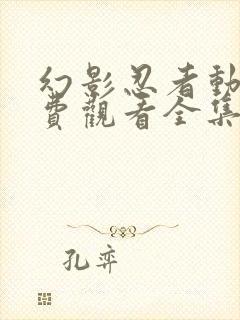 幻影忍者動
費觀看全集
孔弈